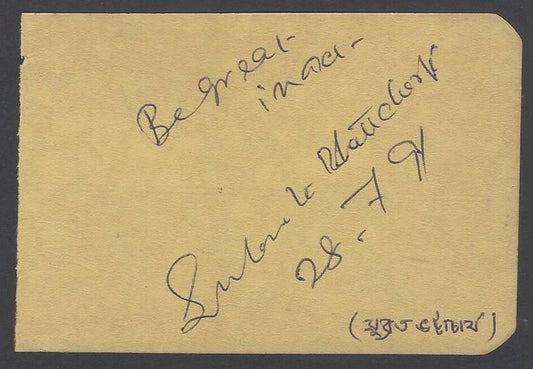 Be great
in act -
Subrata Bhattacharya
28.7.91
(সুব্রত ভট্টাচার্য)